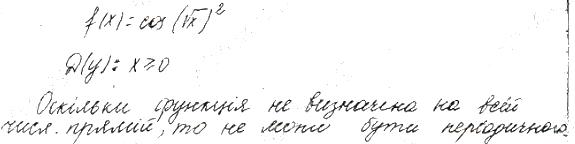 f(x) = cos (√x)²
D(y): x ≥ 0
Оскільки функція не визначена на всей
числ. прямій, то не може бути періодичною.